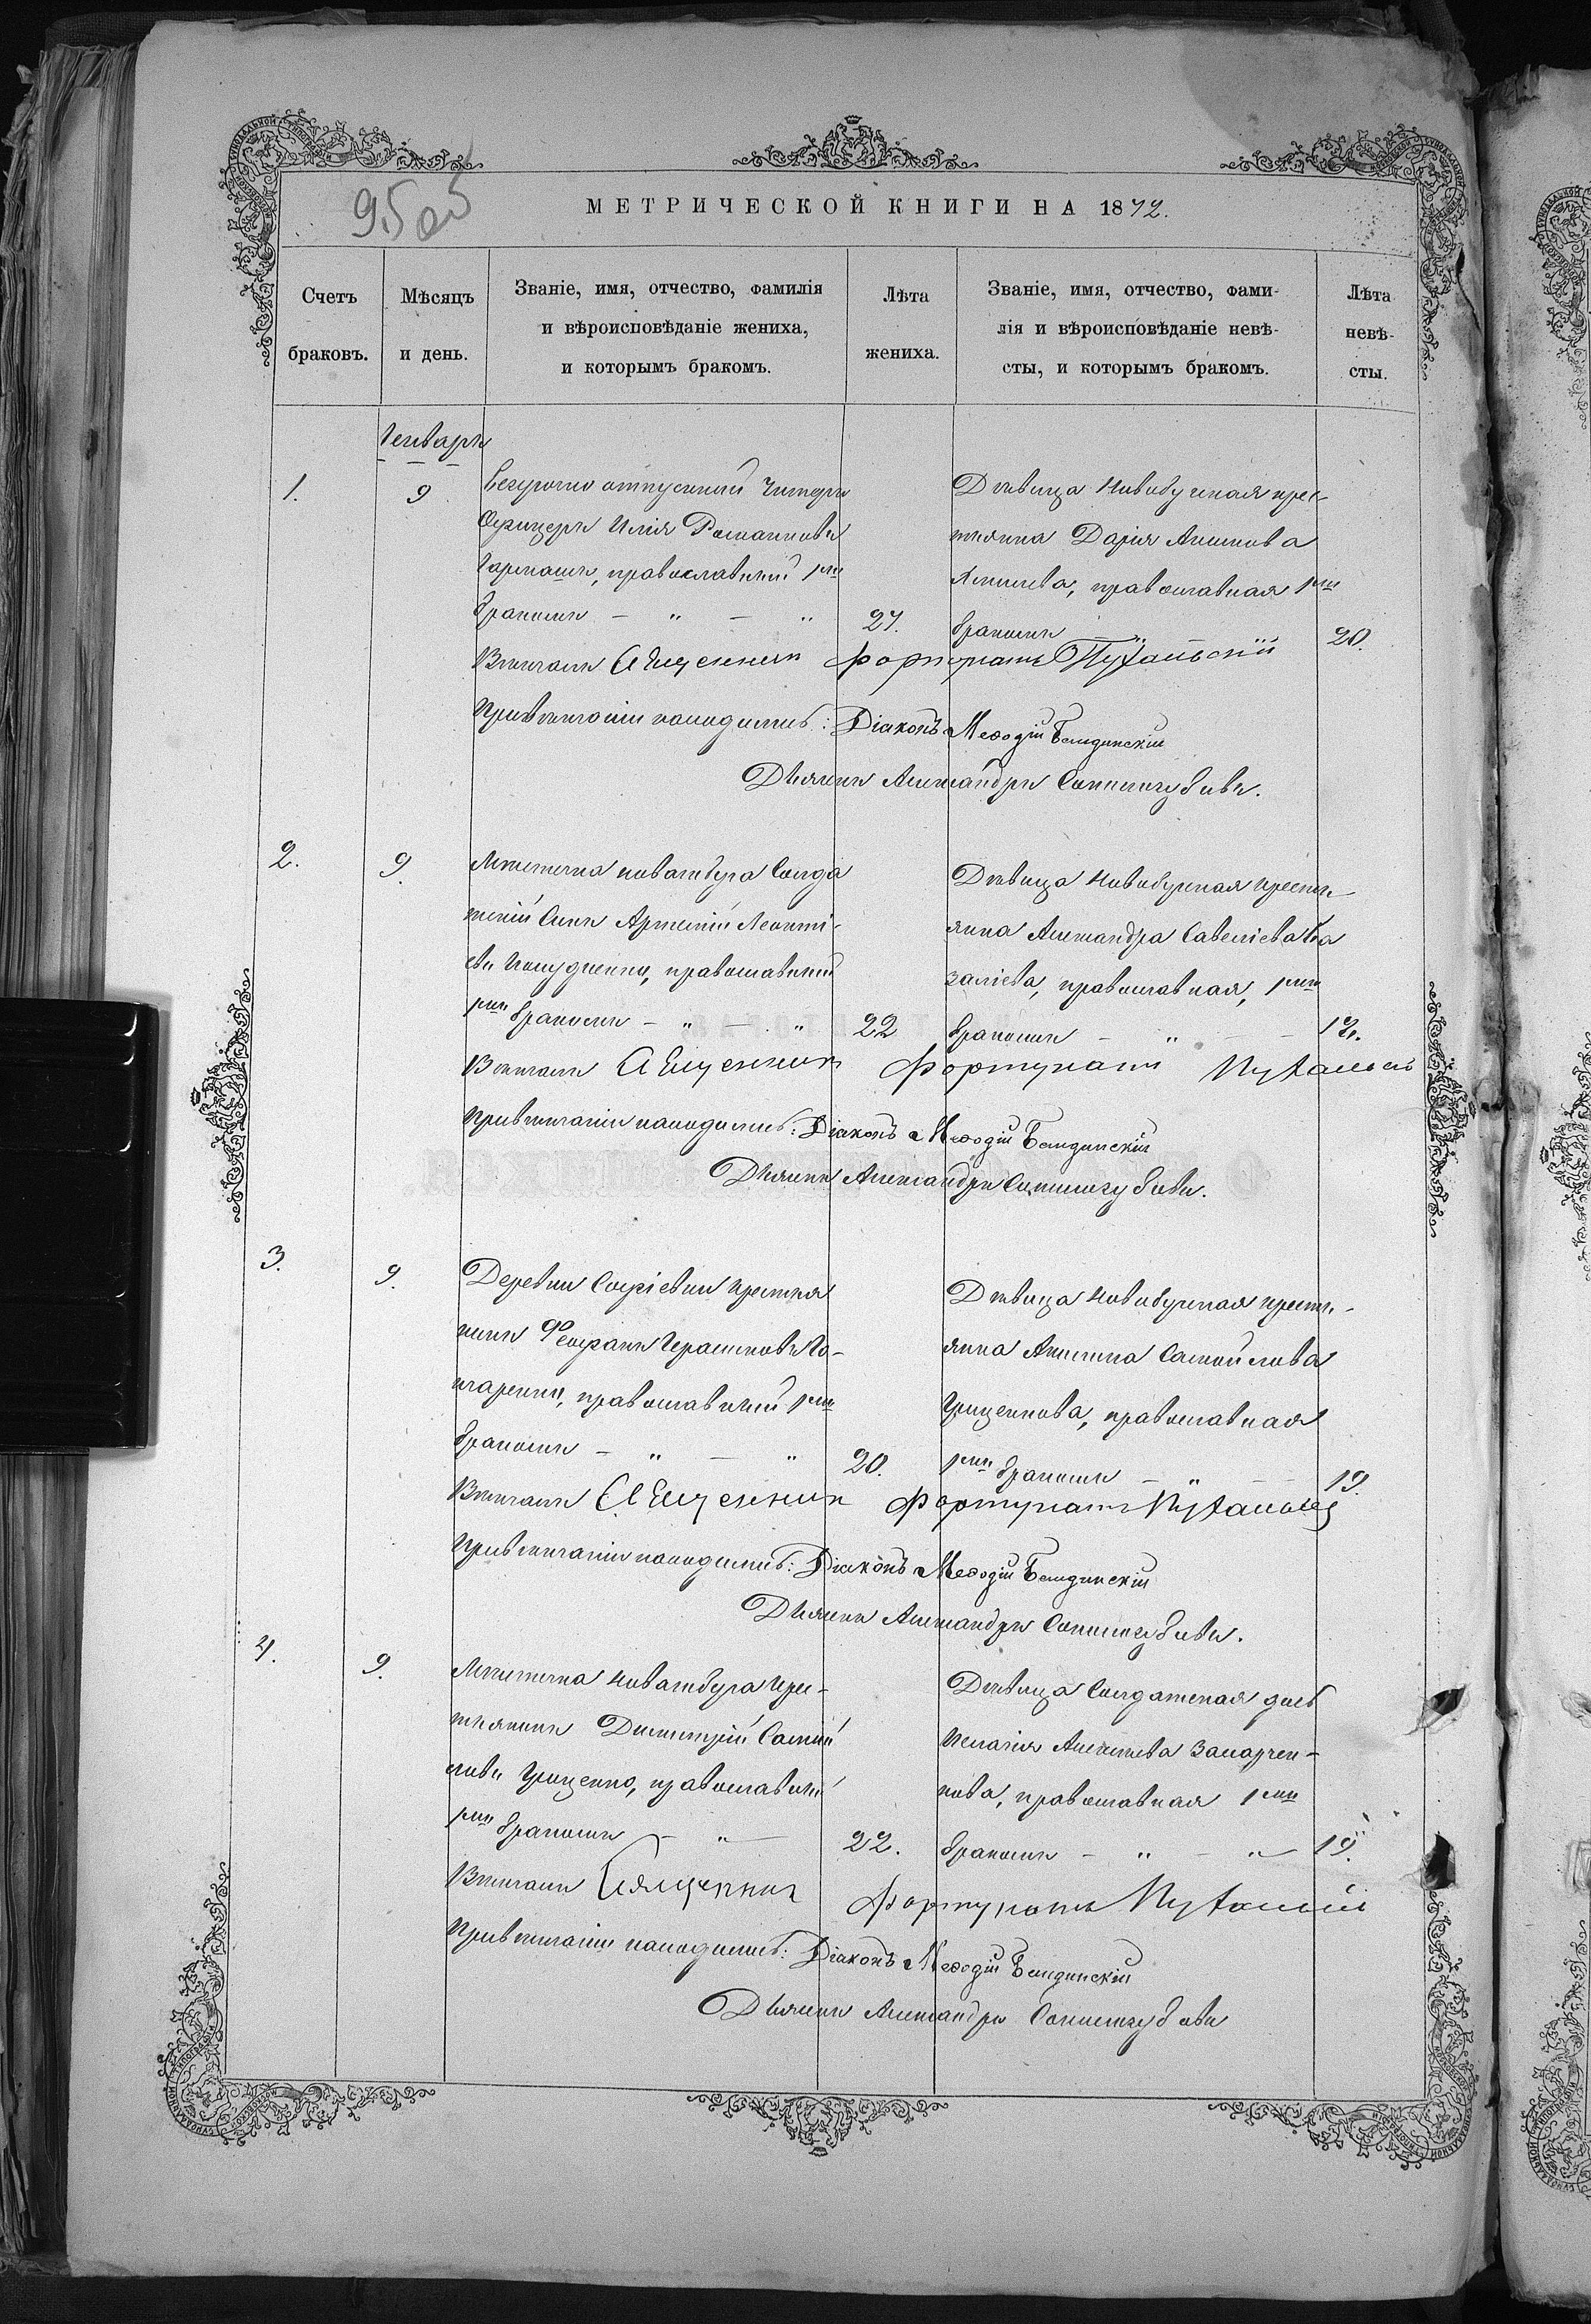 95 об
МЕТРИЧЕСКОЙ КНИГИ НА 1872.
Счетъ браковъ.
Мѣсяцъ и день.
Званіе, имя, отчество, фамилія
и вѣроисповѣданіе жениха,
и которымъ бракомъ.
Лѣта жениха.
Званіе, имя, отчество, фами-
лія и вѣроисповѣданіе невѣ-
сты, и которымъ бракомъ.
Лѣта невѣ-
сты.
Генварь
1.
9
Безсрочно отпускный Унтеръ
Офицеръ Илія Романовъ
Гармашъ, православный 1мъ
бракомъ — " — "
27.
Дѣвица Новобугская крес-
тьянка Дарія Акимова
православная 1мъ
бракомъ — " —
20.
Вѣнчалъ Священникъ Фортунатъ Пухальскій
При вѣнчаніи находились: Діаконъ Меѳодій Бендинскій
Дьячекъ Александръ
2.
9.
Мѣстечка Новаго Буга Солда
тскій Сынъ Артемій Леонті-
евъ православный
1мъ бракомъ — " — "
22
Дѣвица Новобугская кресть-
янка Александра Савеліева Ба
заліева, православная, 1мъ
бракомъ — " —
Вѣнчалъ Священникъ Фортунатъ
При вѣнчаніи находились: Діаконъ Меѳодій Бендинскій
Дьячекъ Александръ
3.
9.
Деревни Софіевки крестья
нинъ Ѳеофанъ Герасимовъ Го-
нчаренко, православный 1мъ
бракомъ — " — "
20.
Дѣвица Новобугская кресть-
янка Акилина Самойлова
Грищенкова, православная
1мъ бракомъ — " —
19.
Вѣнчалъ Священникъ Фортунатъ
При вѣнчаніи находились: Діаконъ Меѳодій Бендинскій
Дьячекъ Александръ
4.
9.
Мѣстечка Новаго Буга крес-
тьянинъ Димитрій Самой
ловъ Грищенко, православный
1мъ бракомъ — " —
22.
Дѣвица Солдатская дочь
Пелагія Алексѣева
православная 1мъ
бракомъ — " — "
19.
Вѣнчалъ Священникъ Фортунатъ
При вѣнчаніи находились: Діаконъ Меѳодій Бендинскій
Дьячекъ Александръ